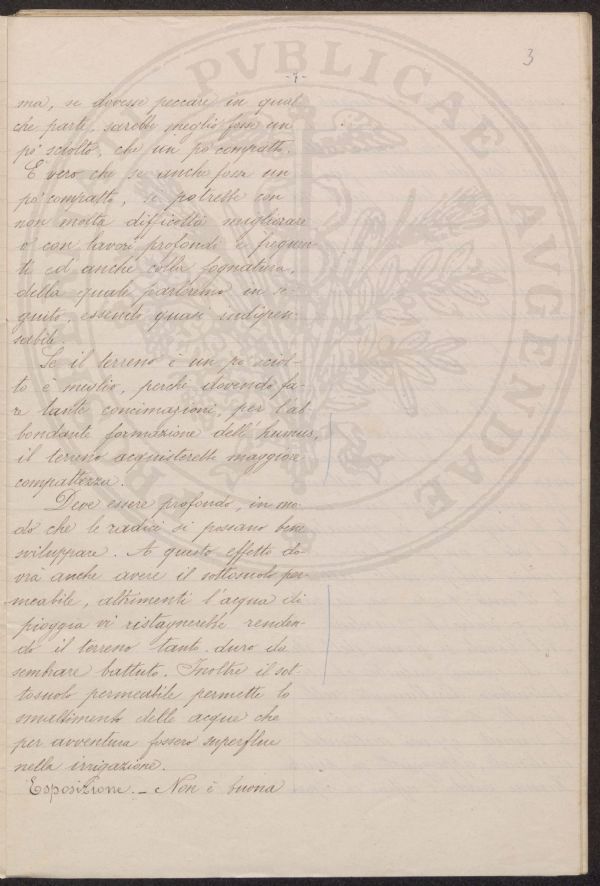 3
- 7 -
ma, se dovesse peccare in qual
che parte, sarebbe meglio fosse un
po' sciolto, che un po' compatto.
E' vero che se anche fosse un
po' compatto, si potrebbe con
non molta difficoltà migliorare
o con lavori profondi e frequen
ti ed anche colla fognatura,
della quale parleremo in se-
guito, essendo quasi indispen-
sabile.
Se il terreno è un po' sciol-
to è meglio, perché dovendo fa-
re tante concimazioni, per l'ab-
bondante formazione dell'humus,
il terreno acquisterebbe maggiore
compattezza.
Deve essere profondo, in mo-
do che le radici si possano bene
sviluppare. A questo effetto do-
vrà anche avere il sottosuolo per
meabile, altrimenti l'acqua di
pioggia vi ristagnerebbe renden-
do il terreno tanto duro da
sembrare battuto. Inoltre il sot-
tosuolo permeabile permette lo
smaltimento delle acque che
per avventura fossero superflue
nella irrigazione.
Esposizione. - Non è buona
PVBLICAE
AVGENDAE